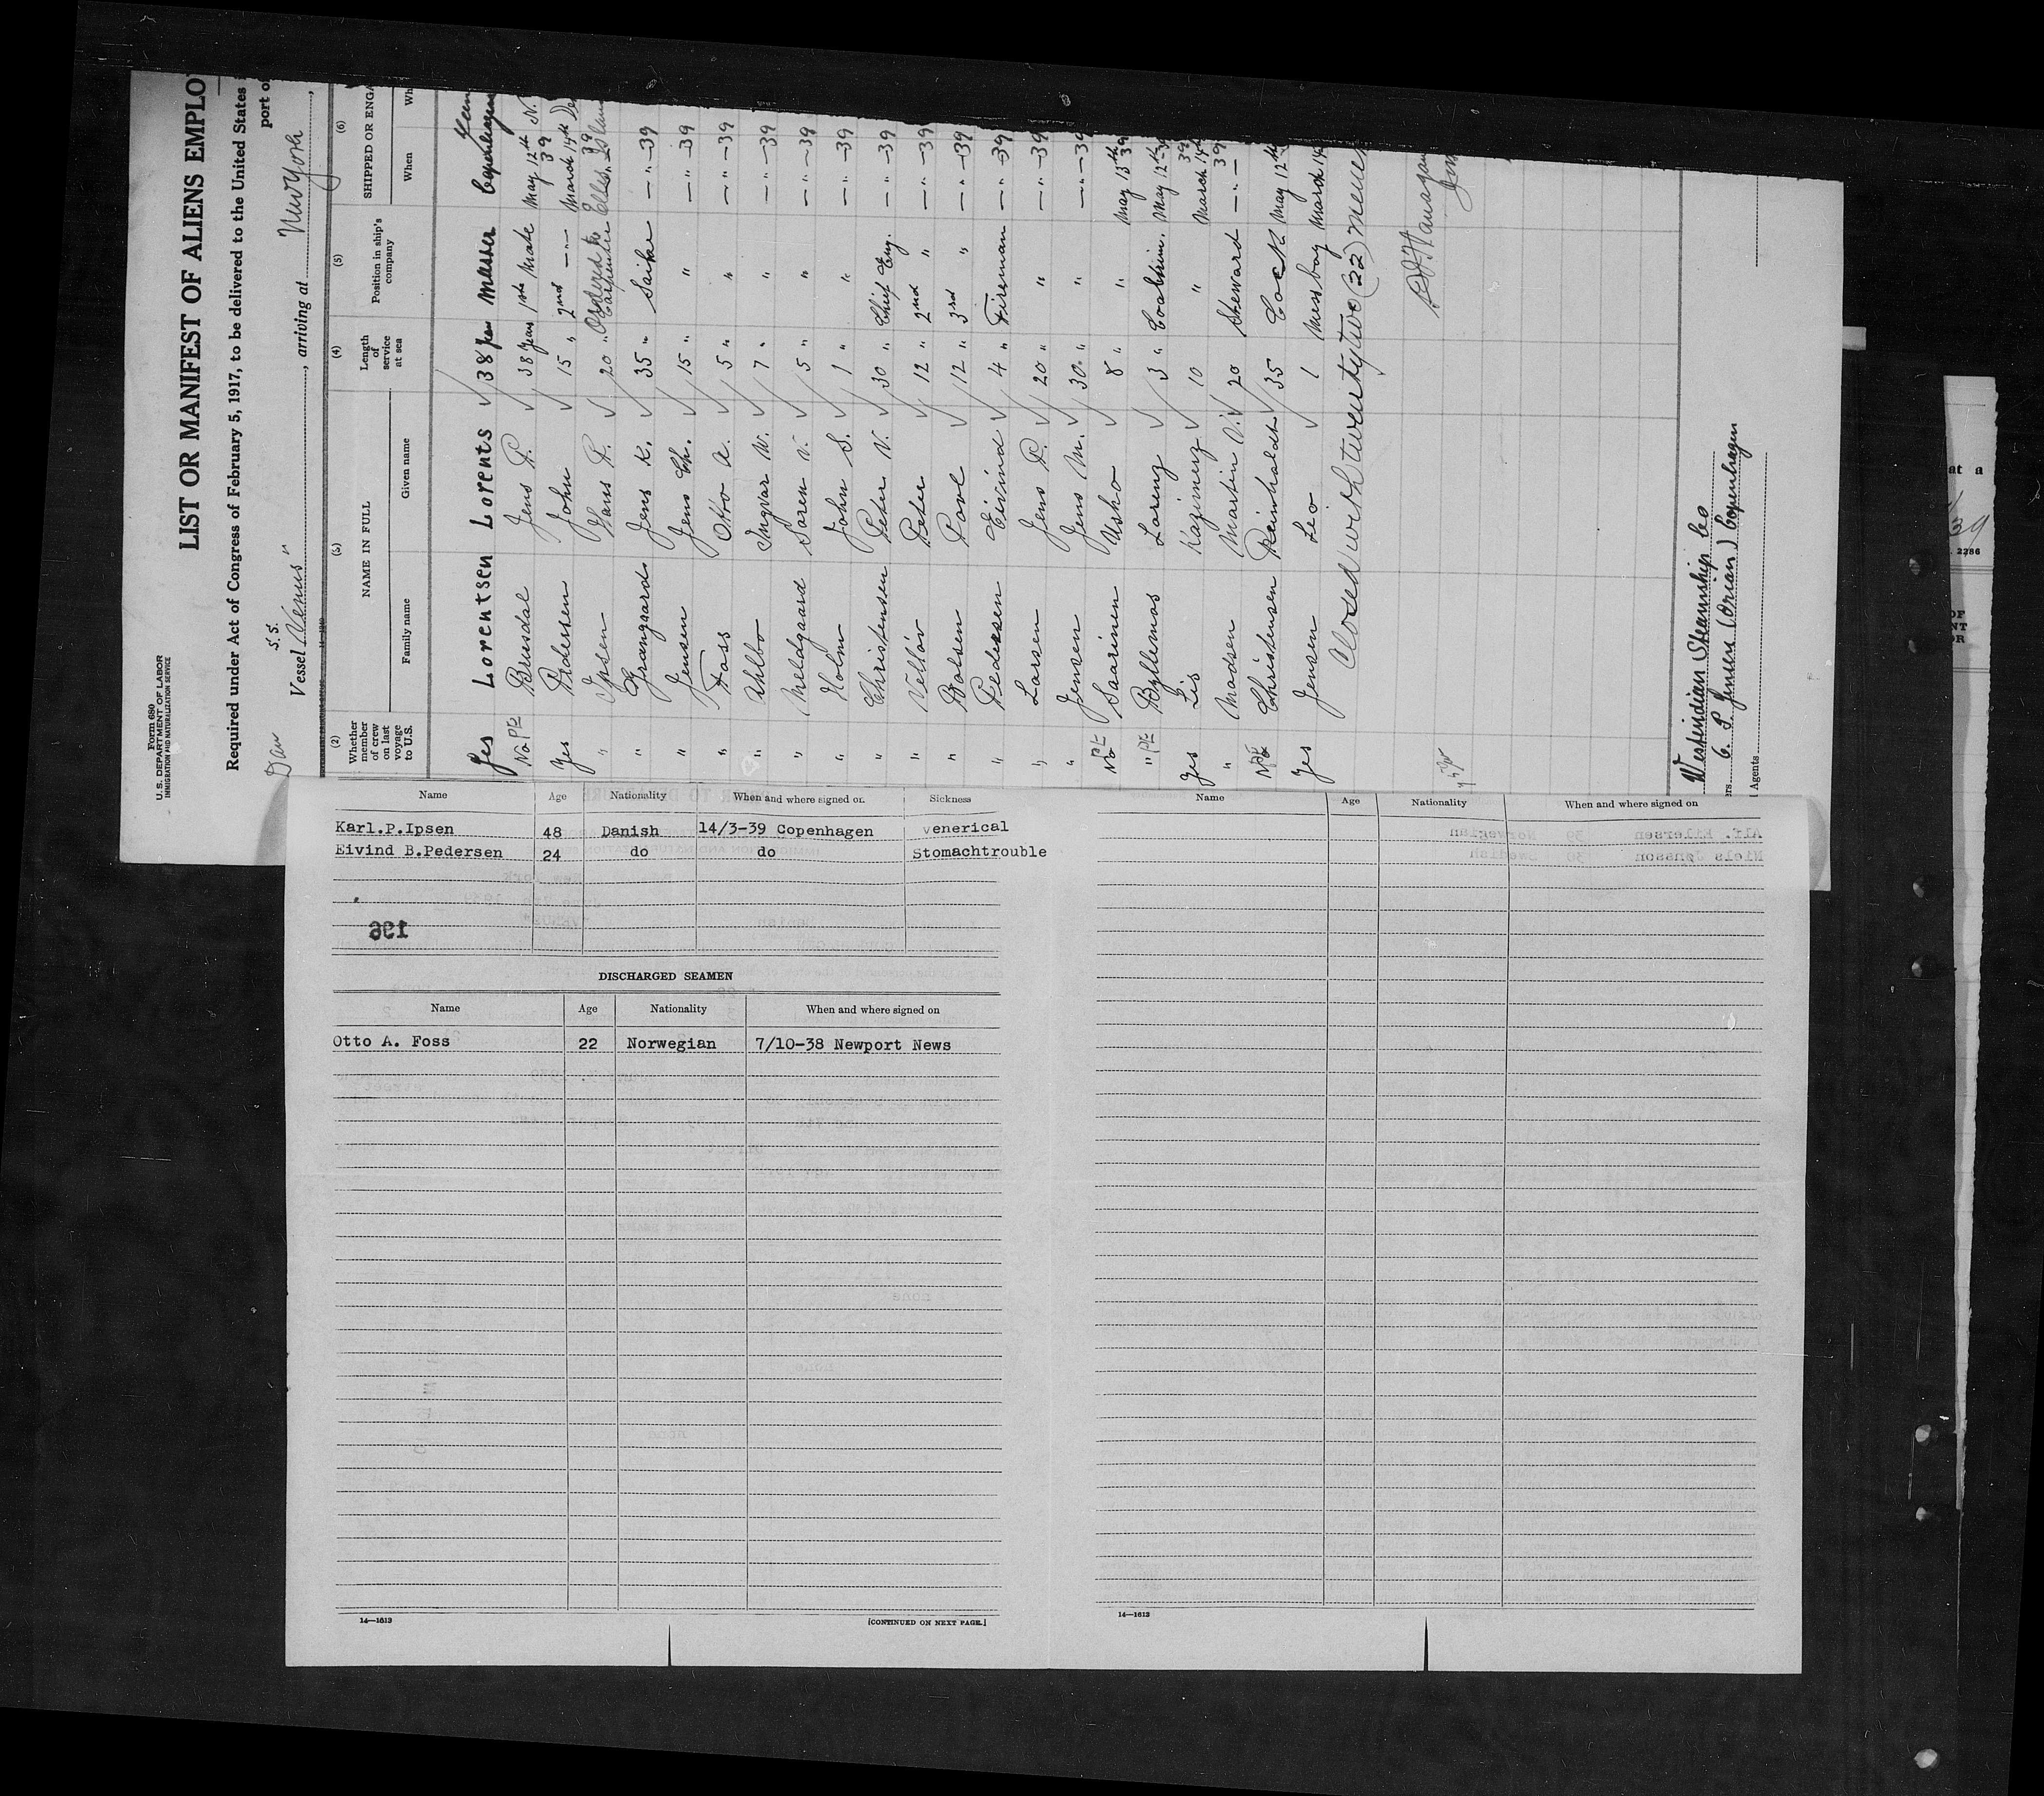 Form 680
U.S. DEPARTMENT OF LABOR
IMMIGRATION AND NATURALIZATION SERVICE
LIST OR MANIFEST OF ALIENS EMPLO
Required under Act of Congress of February 5, 1917, to be delivered to the United States
port o
Dan S.S.
Vessel "Venus", arriving at New York
(2) (3) (4) (5) (6)
Whether member of crew on last voyage to U.S. NAME IN FULL Length of service at sea Position in ship's company SHIPPED OR ENGA
Family name Given name When Wh
Yes Lorentsen Lorents 38 Master Copenhagen
No Pt Brusdal Jens P. 38 years 1st Mate May 12th 39
Yes Pedersen John 15 " 2nd —"— March 14th 39
" Ipsen Hans P. 20 " Carpenter
" Grangaard Jens K. 35 " Sailor —"—39
" Jensen Jens Ch. 15 " " —"—39
" Foss Otto A. 5 " " —"—39
" Ahlbo Ingvar W. 7 " " —"—39
" Meldgaard Soren V. 5 " " —"—39
" Holm John S. 1 " " —"—39
" Christensen Peter V. 30 " Chief Eng. —"—39
" Velföv Peter 12 " 2nd " —"—39
" Poulsen Povl 12 " 3rd " —"—39
" Pedersen Eivind 4 " Fireman —"—39
" Larsen Jens P. 20 " " —"—39
" Jensen Jens M. 30 " " —"—39
No Pt Saarinen Usko 8 " " May 13th 39
" Pt Byllemos Lorenz 3 " Coaltrim. May 12th 39
Yes Lis Kazimierz 10 " March 14th 39
" Madsen Martin V. 20 Steward —"—
No Pt Christensen Reinholdt 35 Cook May 12th
Yes Jensen Leo 1 Messboy March 14
Closed with twentytwo (22)
Westindian Steamship Co
C. P. Jensen (Orian) Copenhagen
Agents
Name Age Nationality When and where signed on Sickness
Karl.P.Ipsen 48 Danish 14/3-39 Copenhagen Venerical
Eivind B.Pedersen 24 do do Stomachtrouble
DISCHARGED SEAMEN
Name Age Nationality When and where signed on
Otto A. Foss 22 Norwegian 7/10-38 Newport News
14—1613 [CONTINUED ON NEXT PAGE.]
Name Age Nationality When and where signed on
14—1613
at a
2286